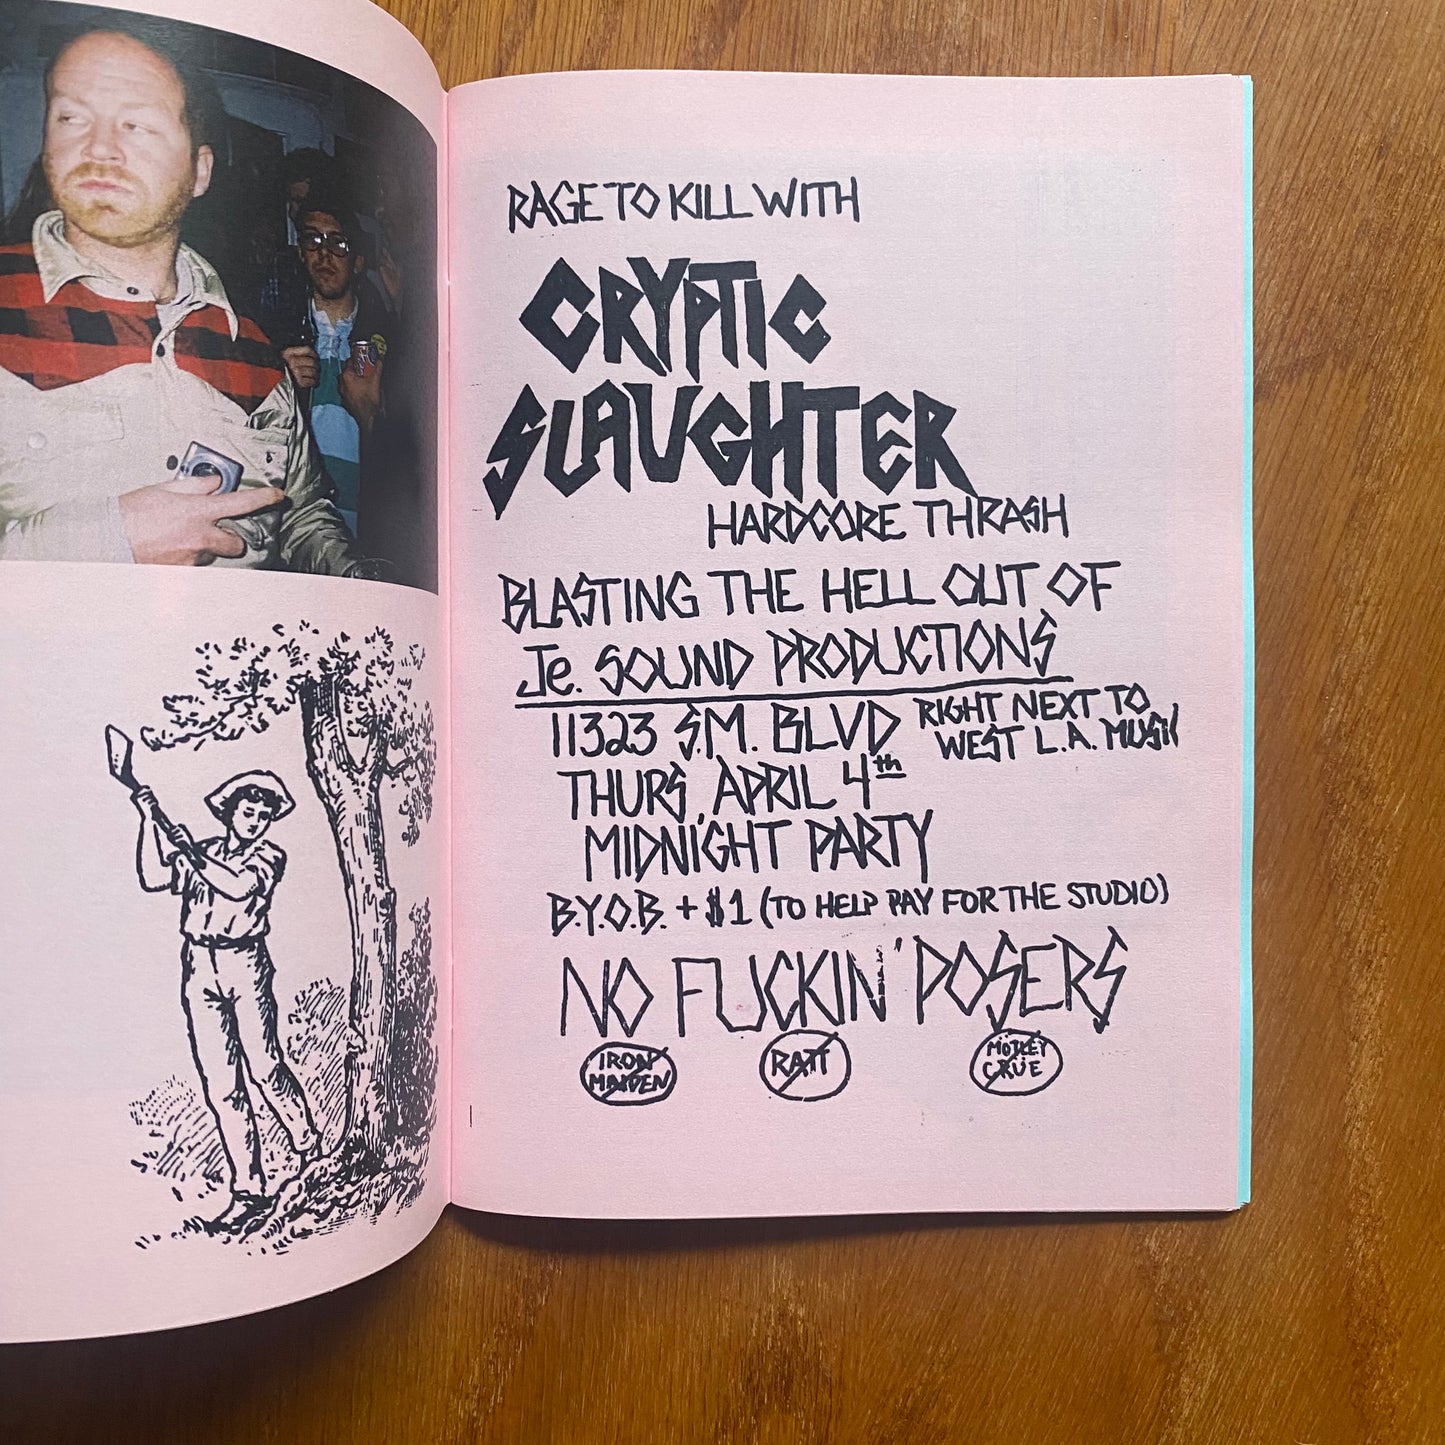 RAGE TO KILL WITH
CRYPTIC
SLAUGHTER
HARDCORE THRASH
BLASTING THE HELL OUT OF
Je. SOUND PRODUCTIONS
11323 S.M. BLVD RIGHT NEXT TO
WEST L.A. MUSIC
THURS, APRIL 4th
MIDNIGHT PARTY
B.Y.O.B. + $1 (TO HELP PAY FOR THE STUDIO)
NO FUCKIN' POSERS
IRON
MAIDEN
RATT
MÖTLEY
CRÜE